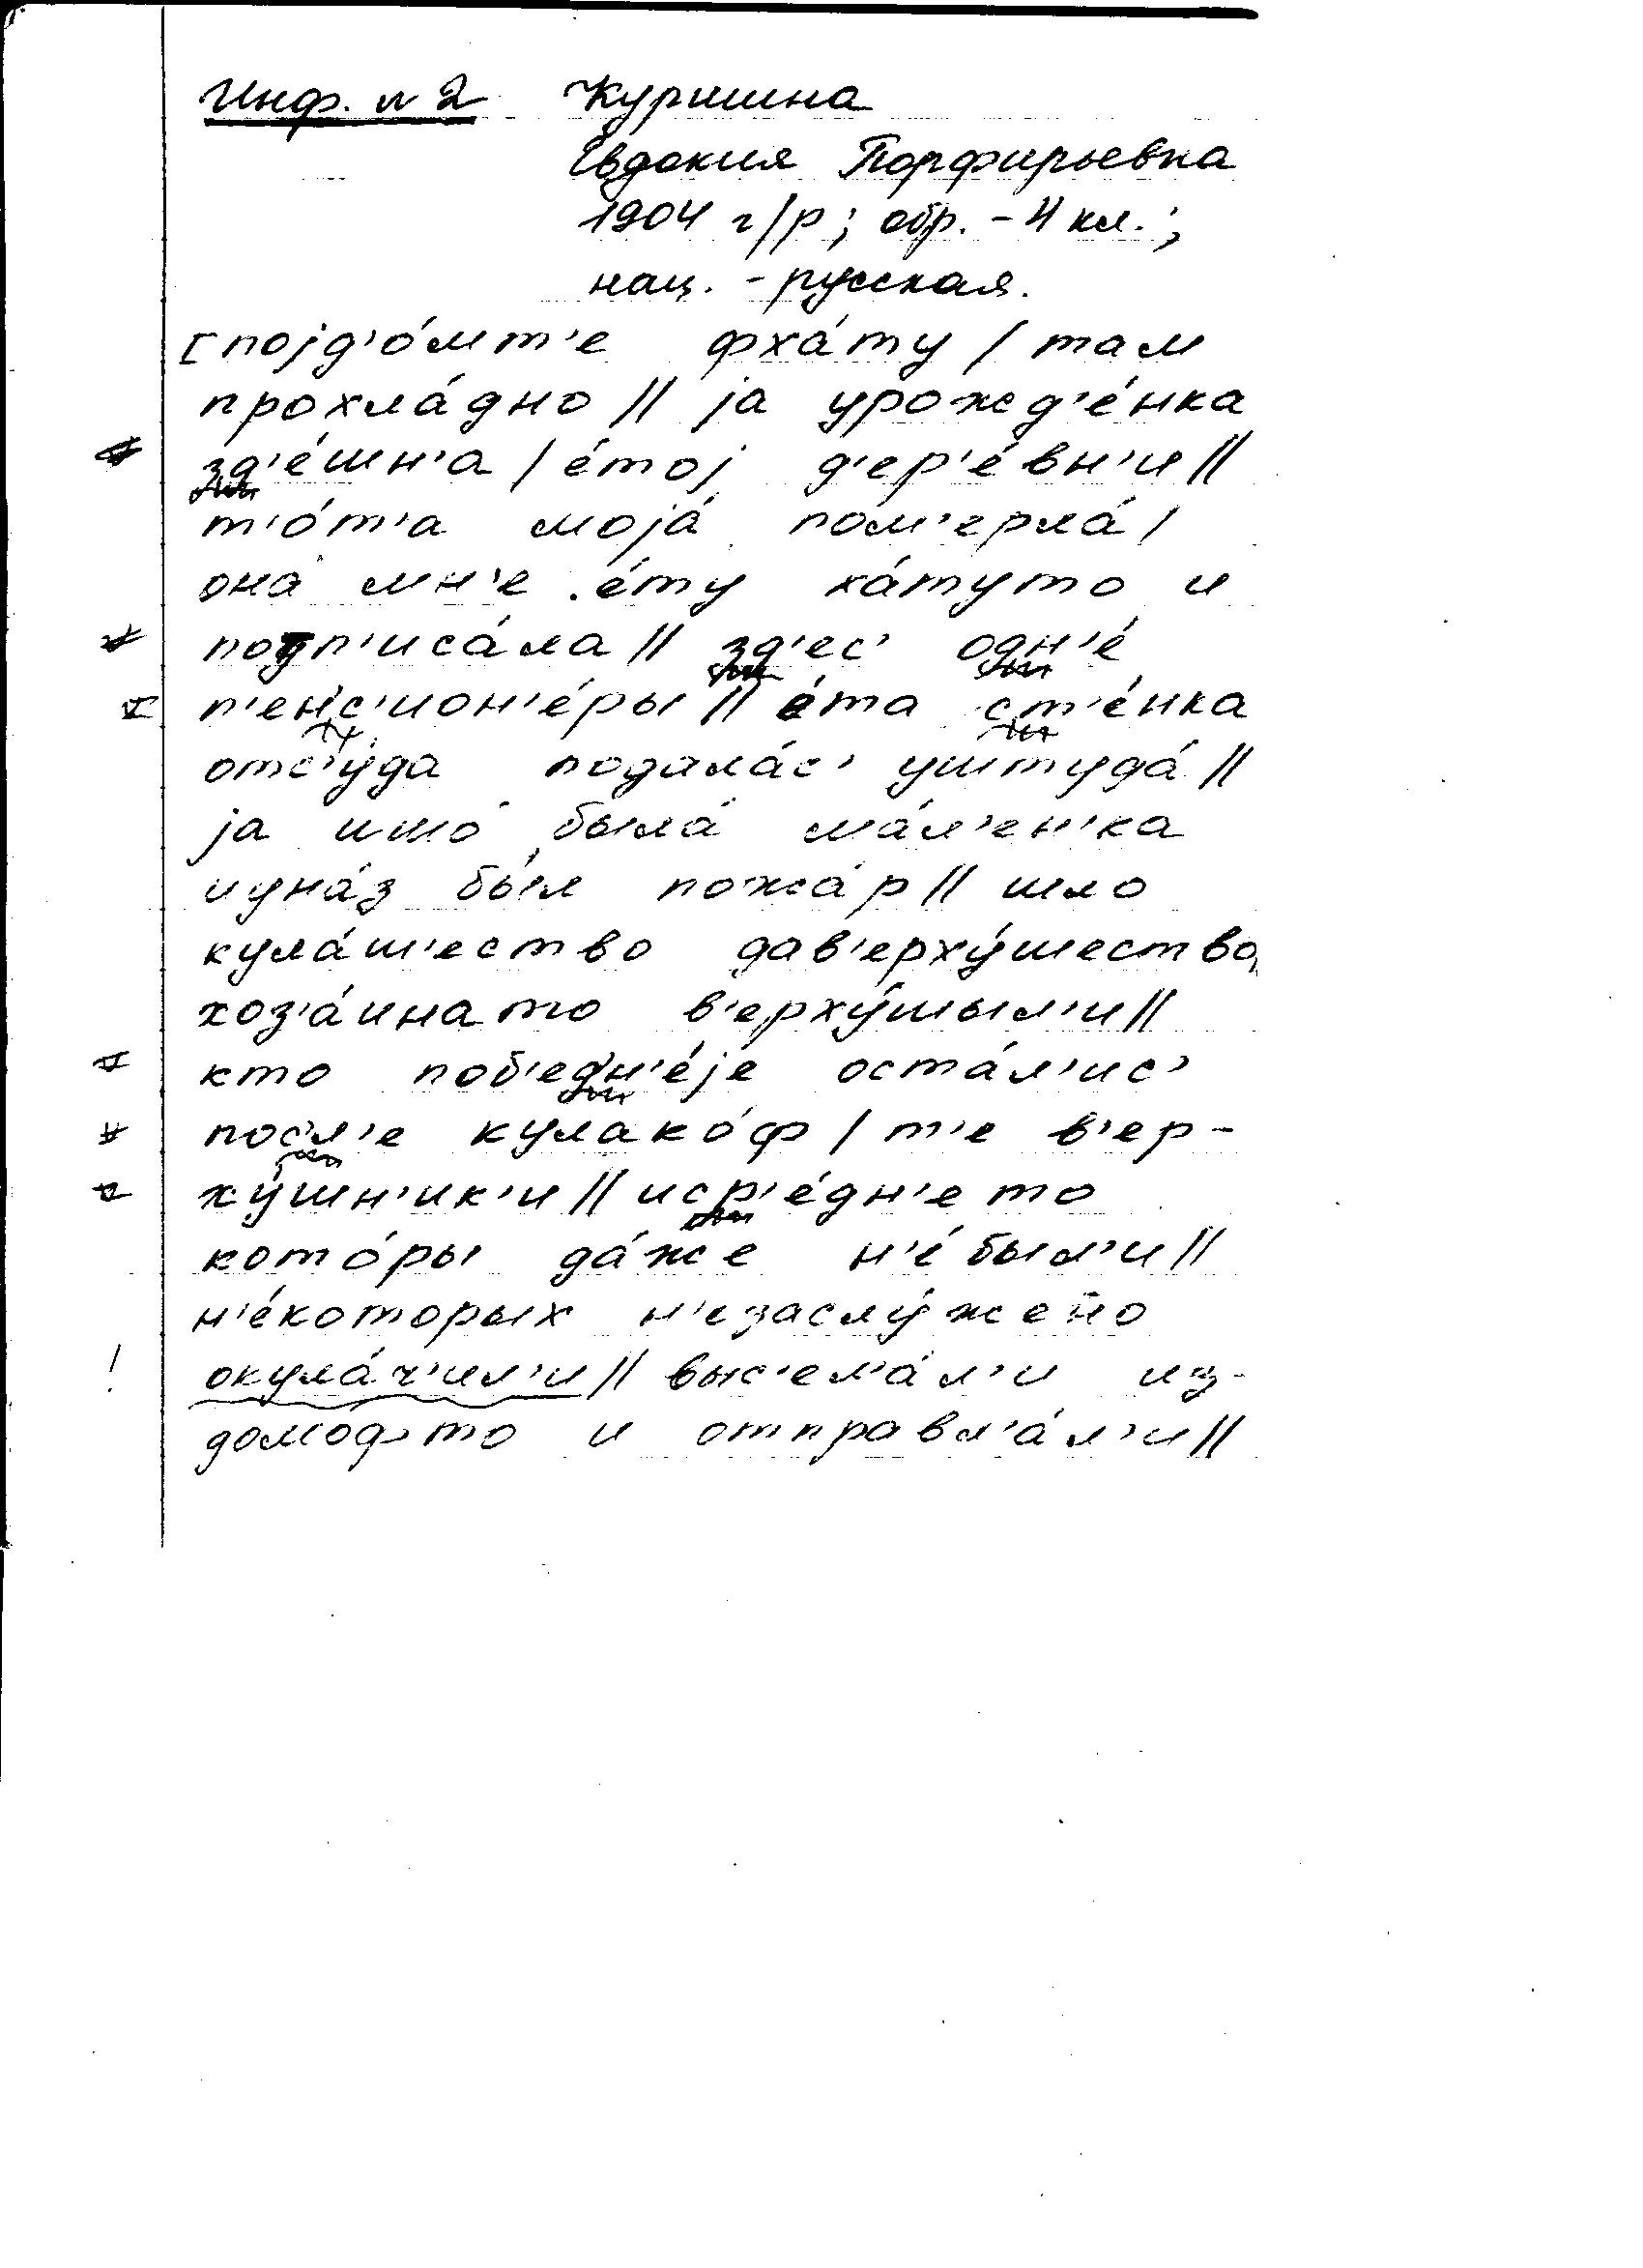 Инф. № 2 Куришна
Евдокия Порфирьевна
1904 г/р; обр. – 4 кл.;
нац. – русская.
[појд'о́мт'е фха́ту / там
прохла́дно // ја урожд'е́нка
зд'е́шн'а / е́тој д'ер'е́вн'и //
т'о́т'а моја́ пом'ерла́ /
она́ мн'е е́ту ха́туто и
потп'иса́ла // зд'ес' одн'е́
п'енс'ион'е́ры // е́та ст'е́нка
отс'у́да подала́с' уштуда́ //
ја ишо́ была́ ма́л'ен'ка
иуна́з бы́л пожа́р // шло
кула́ш'ество дав'ерху́шество,
хоз'а́ината в'ерху́шыл'и //
кто поб'едн'е́је оста́л'ис'
посл'е кулако́ф / т'е в'ер-
ху́шн'ик'и // иср'е́дн'е то
кото́ры да́же н'е́был'и //
н'е́которых н'езаслу́жено
! окула́ч'ил'и // выс'ел'а́л'и из-
домоф то и отправл'а́л'и //